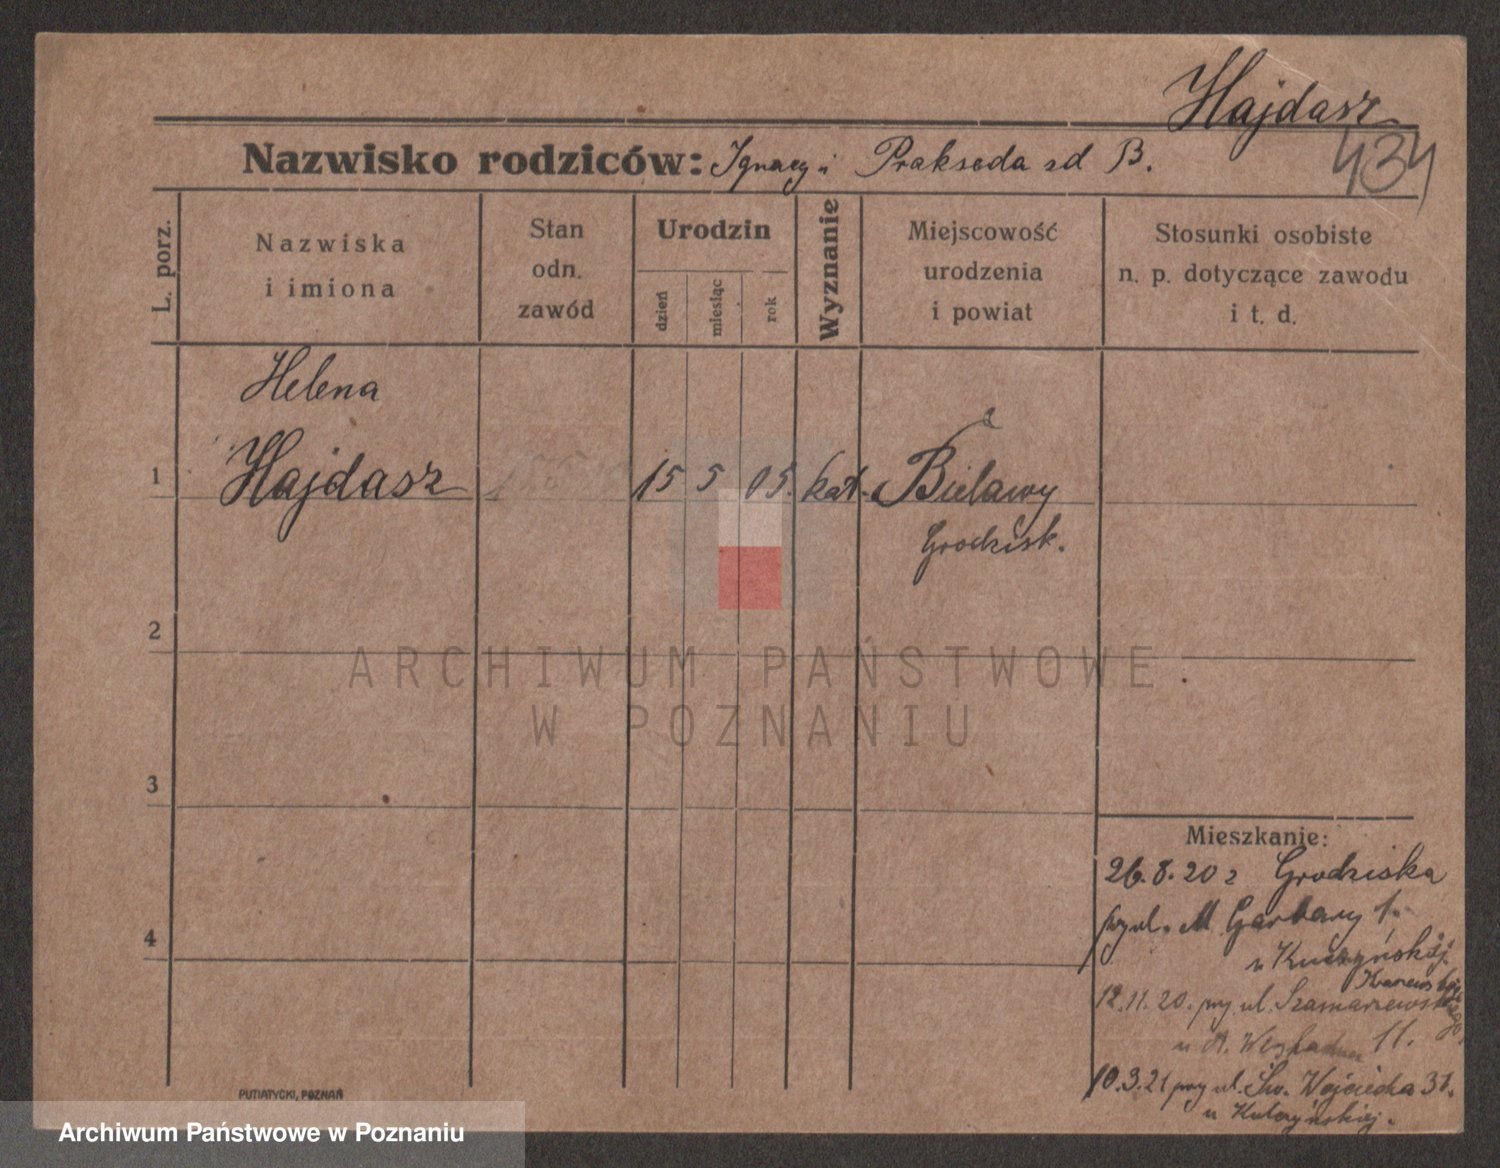 Hajdasz
434
Nazwisko rodziców: Ignacy i Prakseda zd B.
L. porz.
Nazwiska
i imiona
Stan
odn.
zawód
Urodzin
dzień
miesiąc
rok
Wyznanie
Miejscowość
urodzenia
i powiat
Stosunki osobiste
n. p. dotyczące zawodu
i t. d.
Helena
1 Hajdasz 15 5 05. kat. Bielawy
Grodzisk.
2
ARCHIWUM PAŃSTWOWE
W POZNANIU
3
4
Mieszkanie:
26.8.20 z Grodziska
przy ul. M Garbary 1.
u
12.11.20. przy ul. Szamarzewskiego
u 11.
10.3.21 przy ul. Św. Wojciecha 31.
u
PUTIATYCKI, POZNAŃ
Archiwum Państwowe w Poznaniu